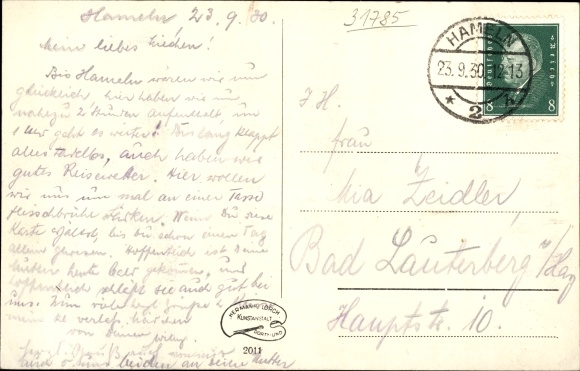 Hameln 23.9.30.
Mein liebes Friedchen!
Bis Hameln wären wir nun
glücklich, hier haben wir nun
nahezu 2 Stunden Aufenthalt, um
1 Uhr geht es weiter. Bis lang klappt
alles tadellos, auch haben wir
gutes Reisewetter. Hier wollen
wir uns nun mal an einer Tasse
Fleischbrühe stärken. Wenn Du diese
Karte erhältst, bist Du schon einen Tag
allein gewesen. Hoffentlich ist Deine
Mutter heute bald gekommen, und
hoffentlich schläft sie auch gut bei
uns. Nun viele herzl. Grüsse
von Deinem
herzl. Gruß auch
und beiden an Mutter
31785
HAMELN
23.9.30.12-13
* 2 k
8 8
I. H.
Frau
Mia Zeidler
Bad Lauterberg a/Harz
Hauptstr. 10.
HERMANN LORCH
KUNSTANSTALT
DORTMUND
2011